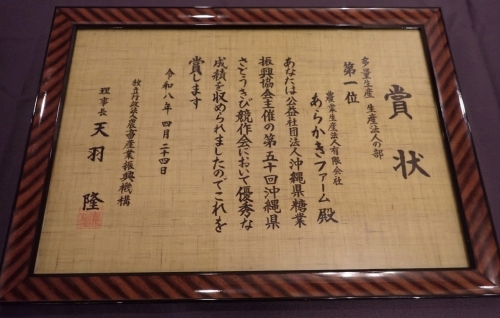 賞状
多量生産 生産法人の部
第一位
農業生産法人有限会社
あらかきファーム 殿
あなたは公益社団法人沖縄県糖業
振興協会主催の第五十回沖縄県
さとうきび競作会において優秀な
成績を収められましたのでこれを
賞します
令和八年 四月二十四日
独立行政法人農畜産業振興機構
理事長 天羽 隆